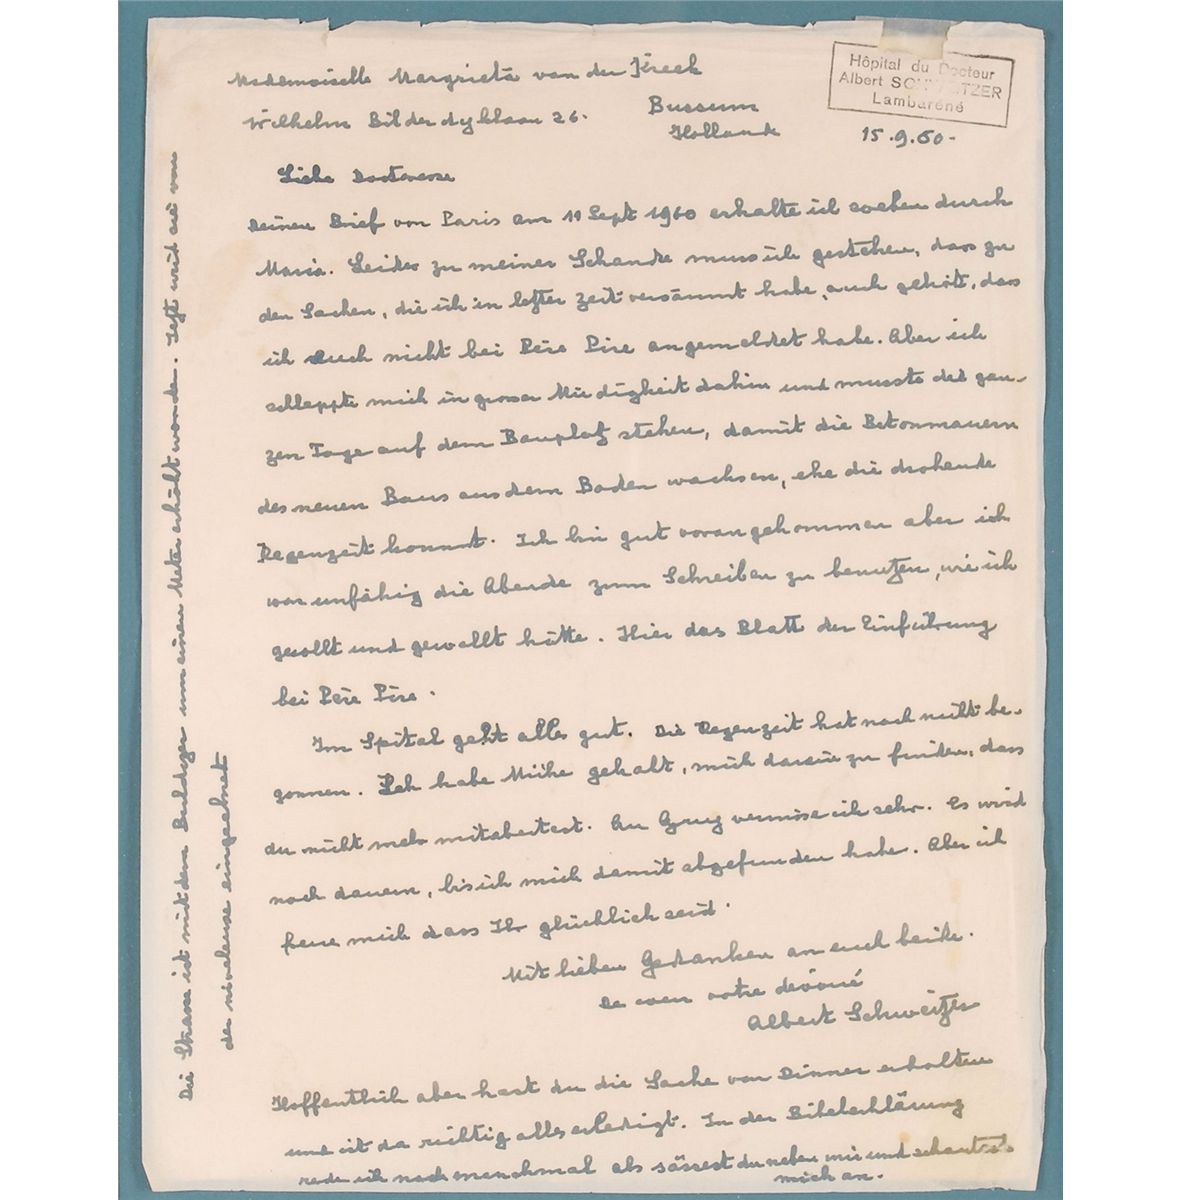 Hôpital du Docteur
Albert SCHWEITZER
Lambaréné
Mademoiselle Margrieta van der Kreek
Wilhelm Bilderdyklaan 26. Bussum
Holland 15.9.60-
Liebe
Deinen Brief von Paris am 11 Sept 1960 erhalte ich soeben durch
Maria. Leider zu meiner Schande muss ich gestehen, dass zu
den Sachen, die ich in letzter Zeit versäumt habe, auch gehört, dass
ich Euch nicht bei Père Pire angemeldet habe. Aber ich
schleppte mich in grosser Müdigkeit dahin und musste den gan-
zen Tage auf dem Bauplatz stehen, damit die Betonmauern
des neuen Baus aus dem Boden wachsen, ehe die drohende
Regenzeit kommt. Ich bin gut vorangekommen aber ich
war unfähig die Abende zum Schreiben zu benutzen, wie ich
gesollt und gewollt hätte. Hier das Blatt der Einführung
bei Père Pire.
Im Spital geht alles gut. Die Regenzeit hat noch nicht be-
gonnen. Ich habe Mühe gehabt, mich darein zu finden, dass
du nicht mehr mitarbeitest. An vermisse ich sehr. Es wird
noch dauern, bis ich mich damit abgefunden habe. Aber ich
freue mich dass Ihr glücklich seid.
Mit lieben Gedanken an euch beide.
De coeur votre dévoué
Albert Schweitzer
Hoffentlich aber hast du die Sache von erhalten
und ist da richtig alles erledigt. In der Bibelerklärung
rede ich noch manchmal als sässest du neben mir und schautest
mich an.
Die Strasse ist mit dem um einen Meter erhöht worden. Jetzt wird sie von
der niveleuse eingeebnet